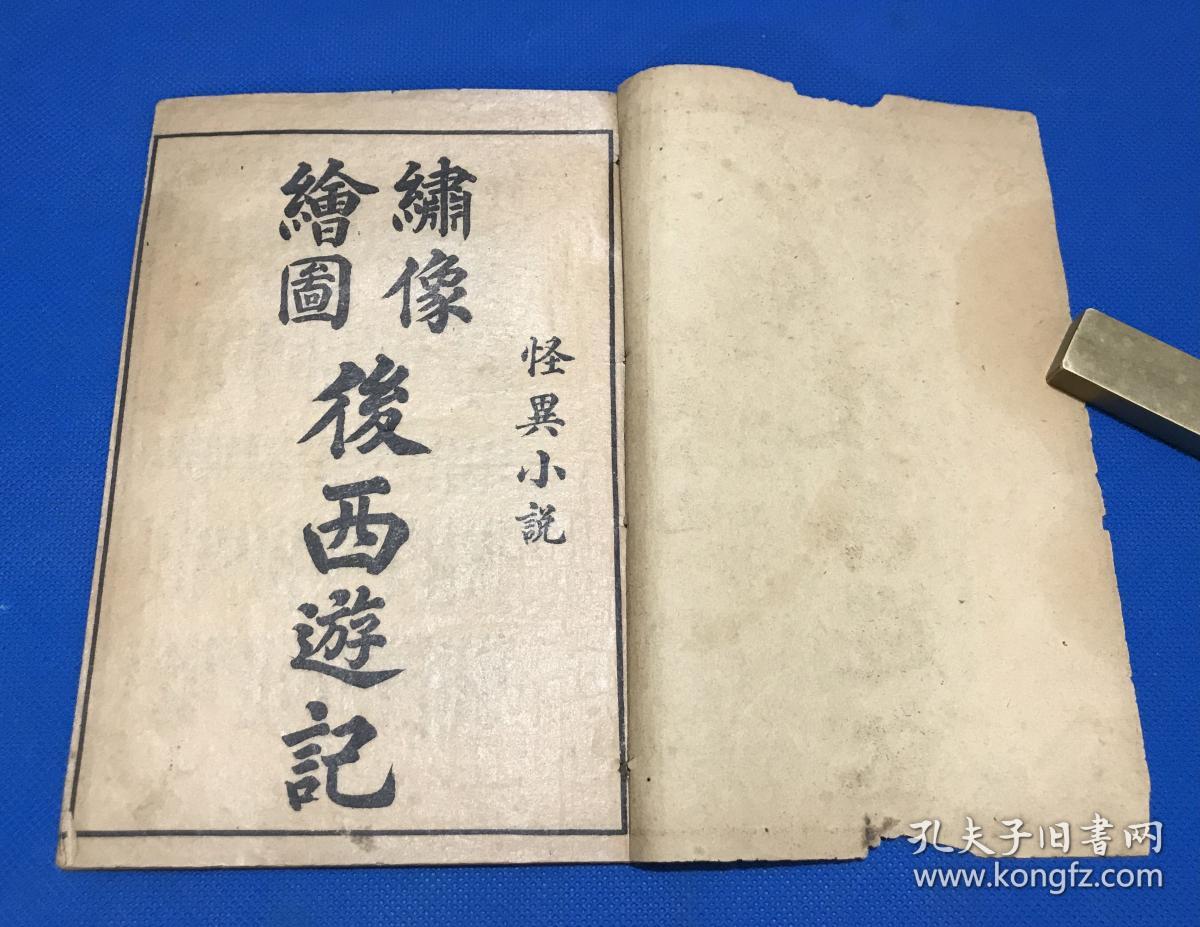 怪異小説
繡像
繪圖
後西遊記
孔夫子旧书网
www.kongfz.com